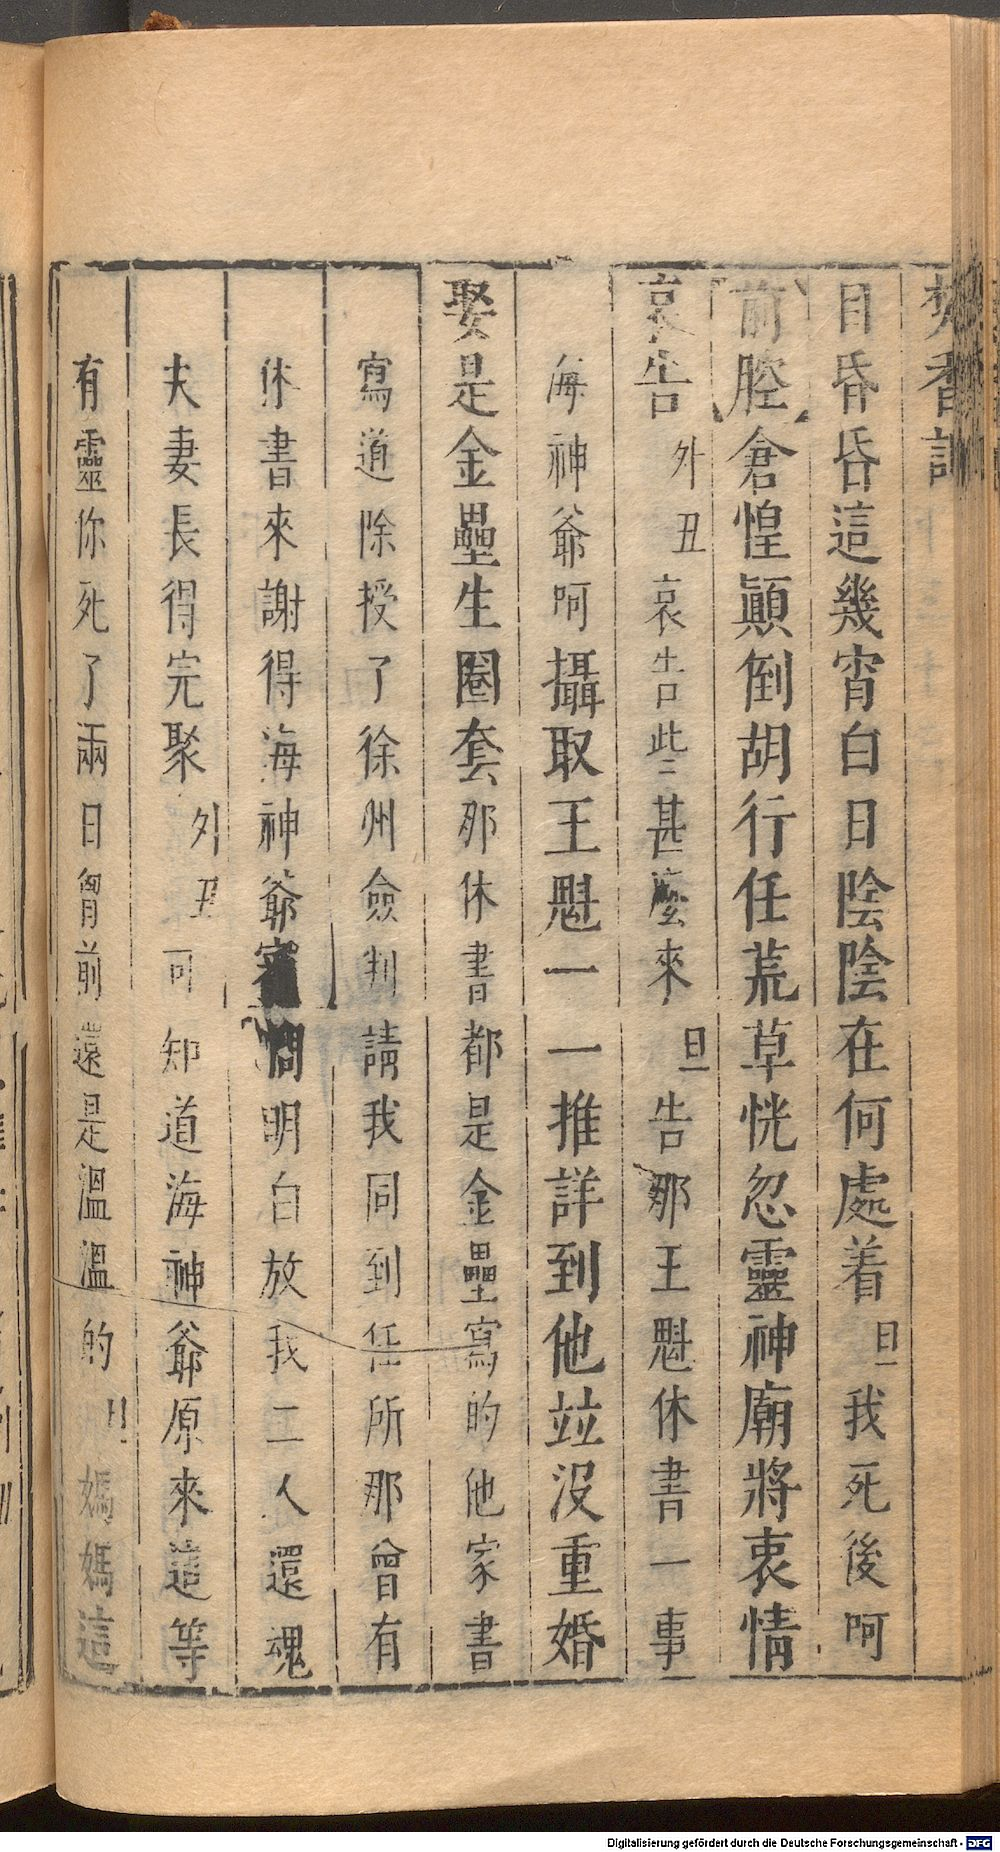 焚香記
目昏昏這幾宵白日陰陰在何處着旦我死後呵
前腔倉惶顛倒胡行任荒草恍忽靈神廟將衷情
哀告外丑哀告此甚麼來旦告那王魁休書一事
海神爺呵攝取王魁一一推詳到他竝没重婚
娶是金壘生圈套那休書都是金壘寫的他家書
寫道除授了徐州僉判請我同到任所那曾有
休書來謝得海神爺審問明白放我二人還魂
夫妻長得完聚外丑可知道海神爺原來這等
有靈你死了兩日胷前還是溫溫的旦媽媽這
Digitalisierung gefördert durch die Deutsche Forschungsgemeinschaft - DFG